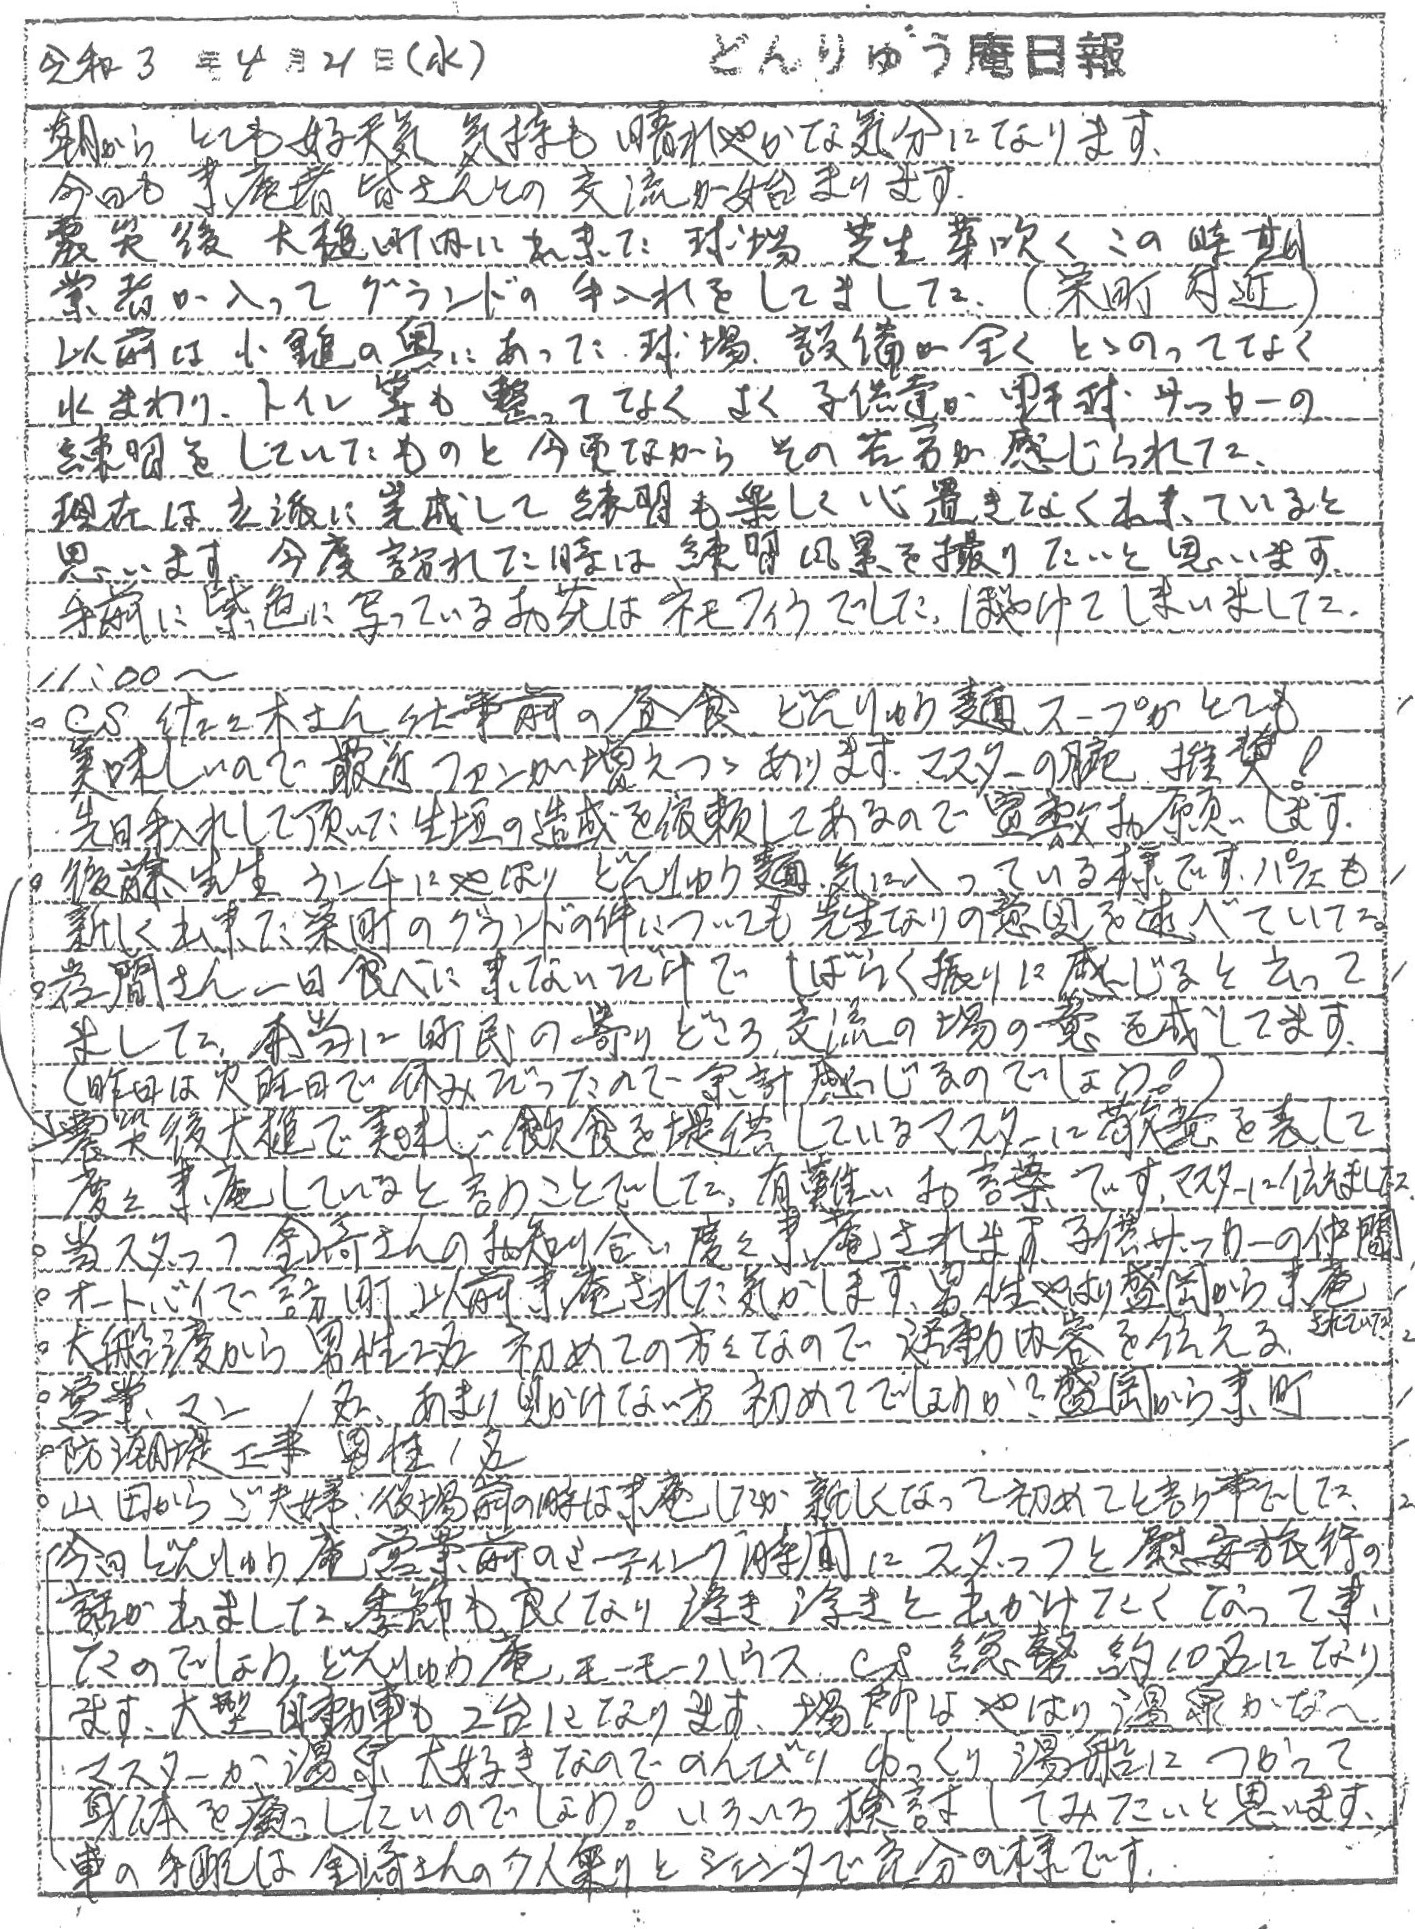 令和3年4月21日(水) どんりゅう庵日報
朝から とても好天気 気持も 晴れやかな気分になります、
今日も 来庵者 皆さんとの 交流が始まります。
震災後 大槌町内に出来た 球場 芝生 芽吹く この時期
業者が入って グランドの 手入れをしてました、(栄町 付近)
以前は 小鎚の奥にあった 球場、設備が全く とゝのってなく
水まわり、トイレ等も 整ってなく よく 子供達が 野球・サッカーの
練習を していたものと 今更ながら その苦労が 感じられた、
現在は 立派に 完成して 練習も楽しく 心置きなく出来ていると
思います、今度 訪れた時は 練習風景を撮りたいと思います、
手前に 紫色に 写っているお花は ネモフィラでした、ぼやけてしまいました、
11:00〜
。CS 佐々木さん 仕事前の昼食、どんりゅう麺 スープがとても
美味しいので 最近 ファンが増えつゝあります、マスターの腕 推奨!
先日手入れして頂いた 生垣の造成を依頼してあるので 宜敷お願いします、
。後藤先生 ランチにやはり どんりゅう麺 気に入っている様です、パフェも
新しく出来た 栄町のグランドの件についても 先生なりの意見を述べていてる
。岩間さん 一日食べに来ないだけで しばらく振りに感じると云って
ました、本当に 町民の寄りどころ 交流の場の意を成してます、
(昨日は火曜日で 休みだったので 余計感じるのでしょう!)
震災後大槌で美味しい飲食を提供しているマスターに敬意を表して
度々来庵していると言うことでした、有難いお言葉です、マスターに伝えました、
。当スタッフ 金崎さんのお知り合い 度々来庵されます 子供サッカーの仲間
。オートバイで訪町 以前来庵された気がします、男性やはり盛岡から来庵
されていた
。大船渡から 男性2名 初めての方々なので 活動内容を伝える、
。営業マン 1名、あまり見かけない方 初めてでしょうか? 盛岡から来町
。防潮堤工事 男性1名
。山田からご夫婦、役場前の時は来庵したが 新しくなって初めてと言う事でした、
今回どんりゅう庵 営業前のミーティング時間に スタッフと慰安旅行の
話が出ました、季節も良くなり 浮き浮きと出かけたくなって来
たのでしょう、どんりゅう庵、モーモーハウス、CS 総勢 約10名になり
ます、大型自動車も 2台になります、場所はやはり 温泉かな〜
マスターが温泉大好きなので のんびり ゆっくり 湯船に つかって
身体を癒したいのでしょう! いろいろ検討してみたいと思います、
車の手配は 金崎さんの7人乗りと シエンタで 充分の様です、